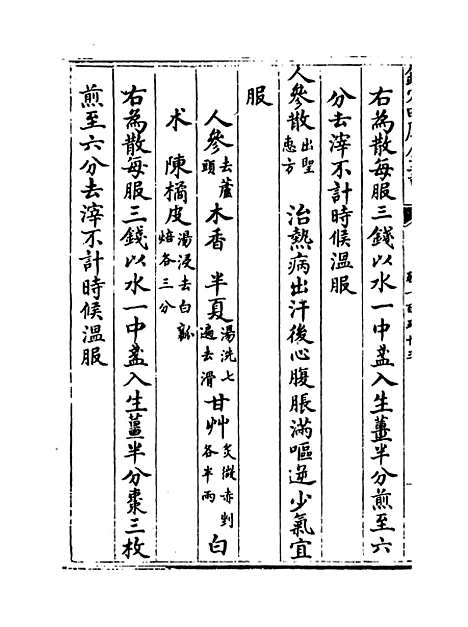 右為散每服三錢以水一中盞入生薑半分煎至六
分去滓不計時候溫服
人參散出聖惠方 治熱病出汗後心腹脹滿嘔逆少氣宜
服
人參去蘆頭 木香 半夏湯洗七遍去滑 甘艸炙微赤剉各半兩 白
术 陳橘皮湯浸去白瓤焙各三分
右為散每服三錢以水一中盞入生薑半分棗三枚
煎至六分去滓不計時候溫服